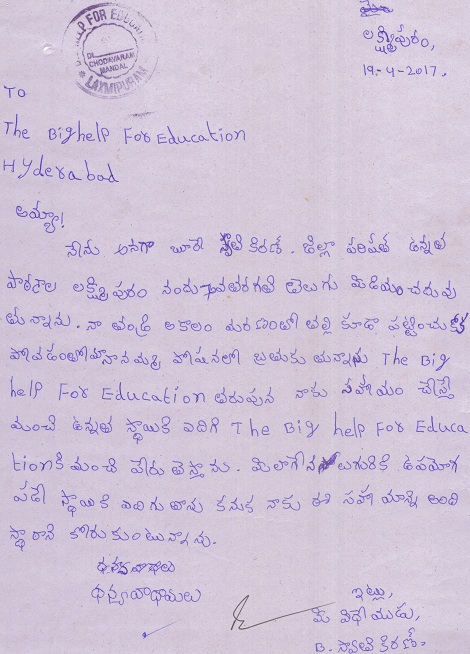 BIG HELP FOR EDUCATION
CHODAVARAM
MANDAL
LAXMIPURAM
లక్ష్మీపురం,
19-4-2017.
To
The Bighelp For Education
Hyderabad
అయ్యా!
నేను అనగా బూరె స్వాతి కిరణ్. జిల్లా పరిషత్ ఉన్నత
పాఠశాల లక్ష్మీపురం నందు 7వతరగతి తెలుగు మీడియం చదువు
తున్నాను. నా తండ్రి అకాలం మరణంతో తల్లి కూడా పట్టించుకోక
పోవడంతో మా నానమ్మ పోషనలో బ్రతుకు తున్నాను The Big
help For Education తరుపున నాకు సహాయం చేస్తే
మంచి ఉన్నత స్థాయికి ఎదిగి The Big help For Educa
tionకి మంచి పేరు తెస్తాను. మీలాగే నలుగురికి ఉపయోగ
పడే స్థాయికి ఎదుగుతాను కనుక నాకు ఈ సహాయాన్ని అంది
స్తారాని కోరుకుంటున్నాను.
ధన్యవాధాములు
ఇట్లు,
మీ విధేయుడు,
B. స్వాతి కిరణ్.